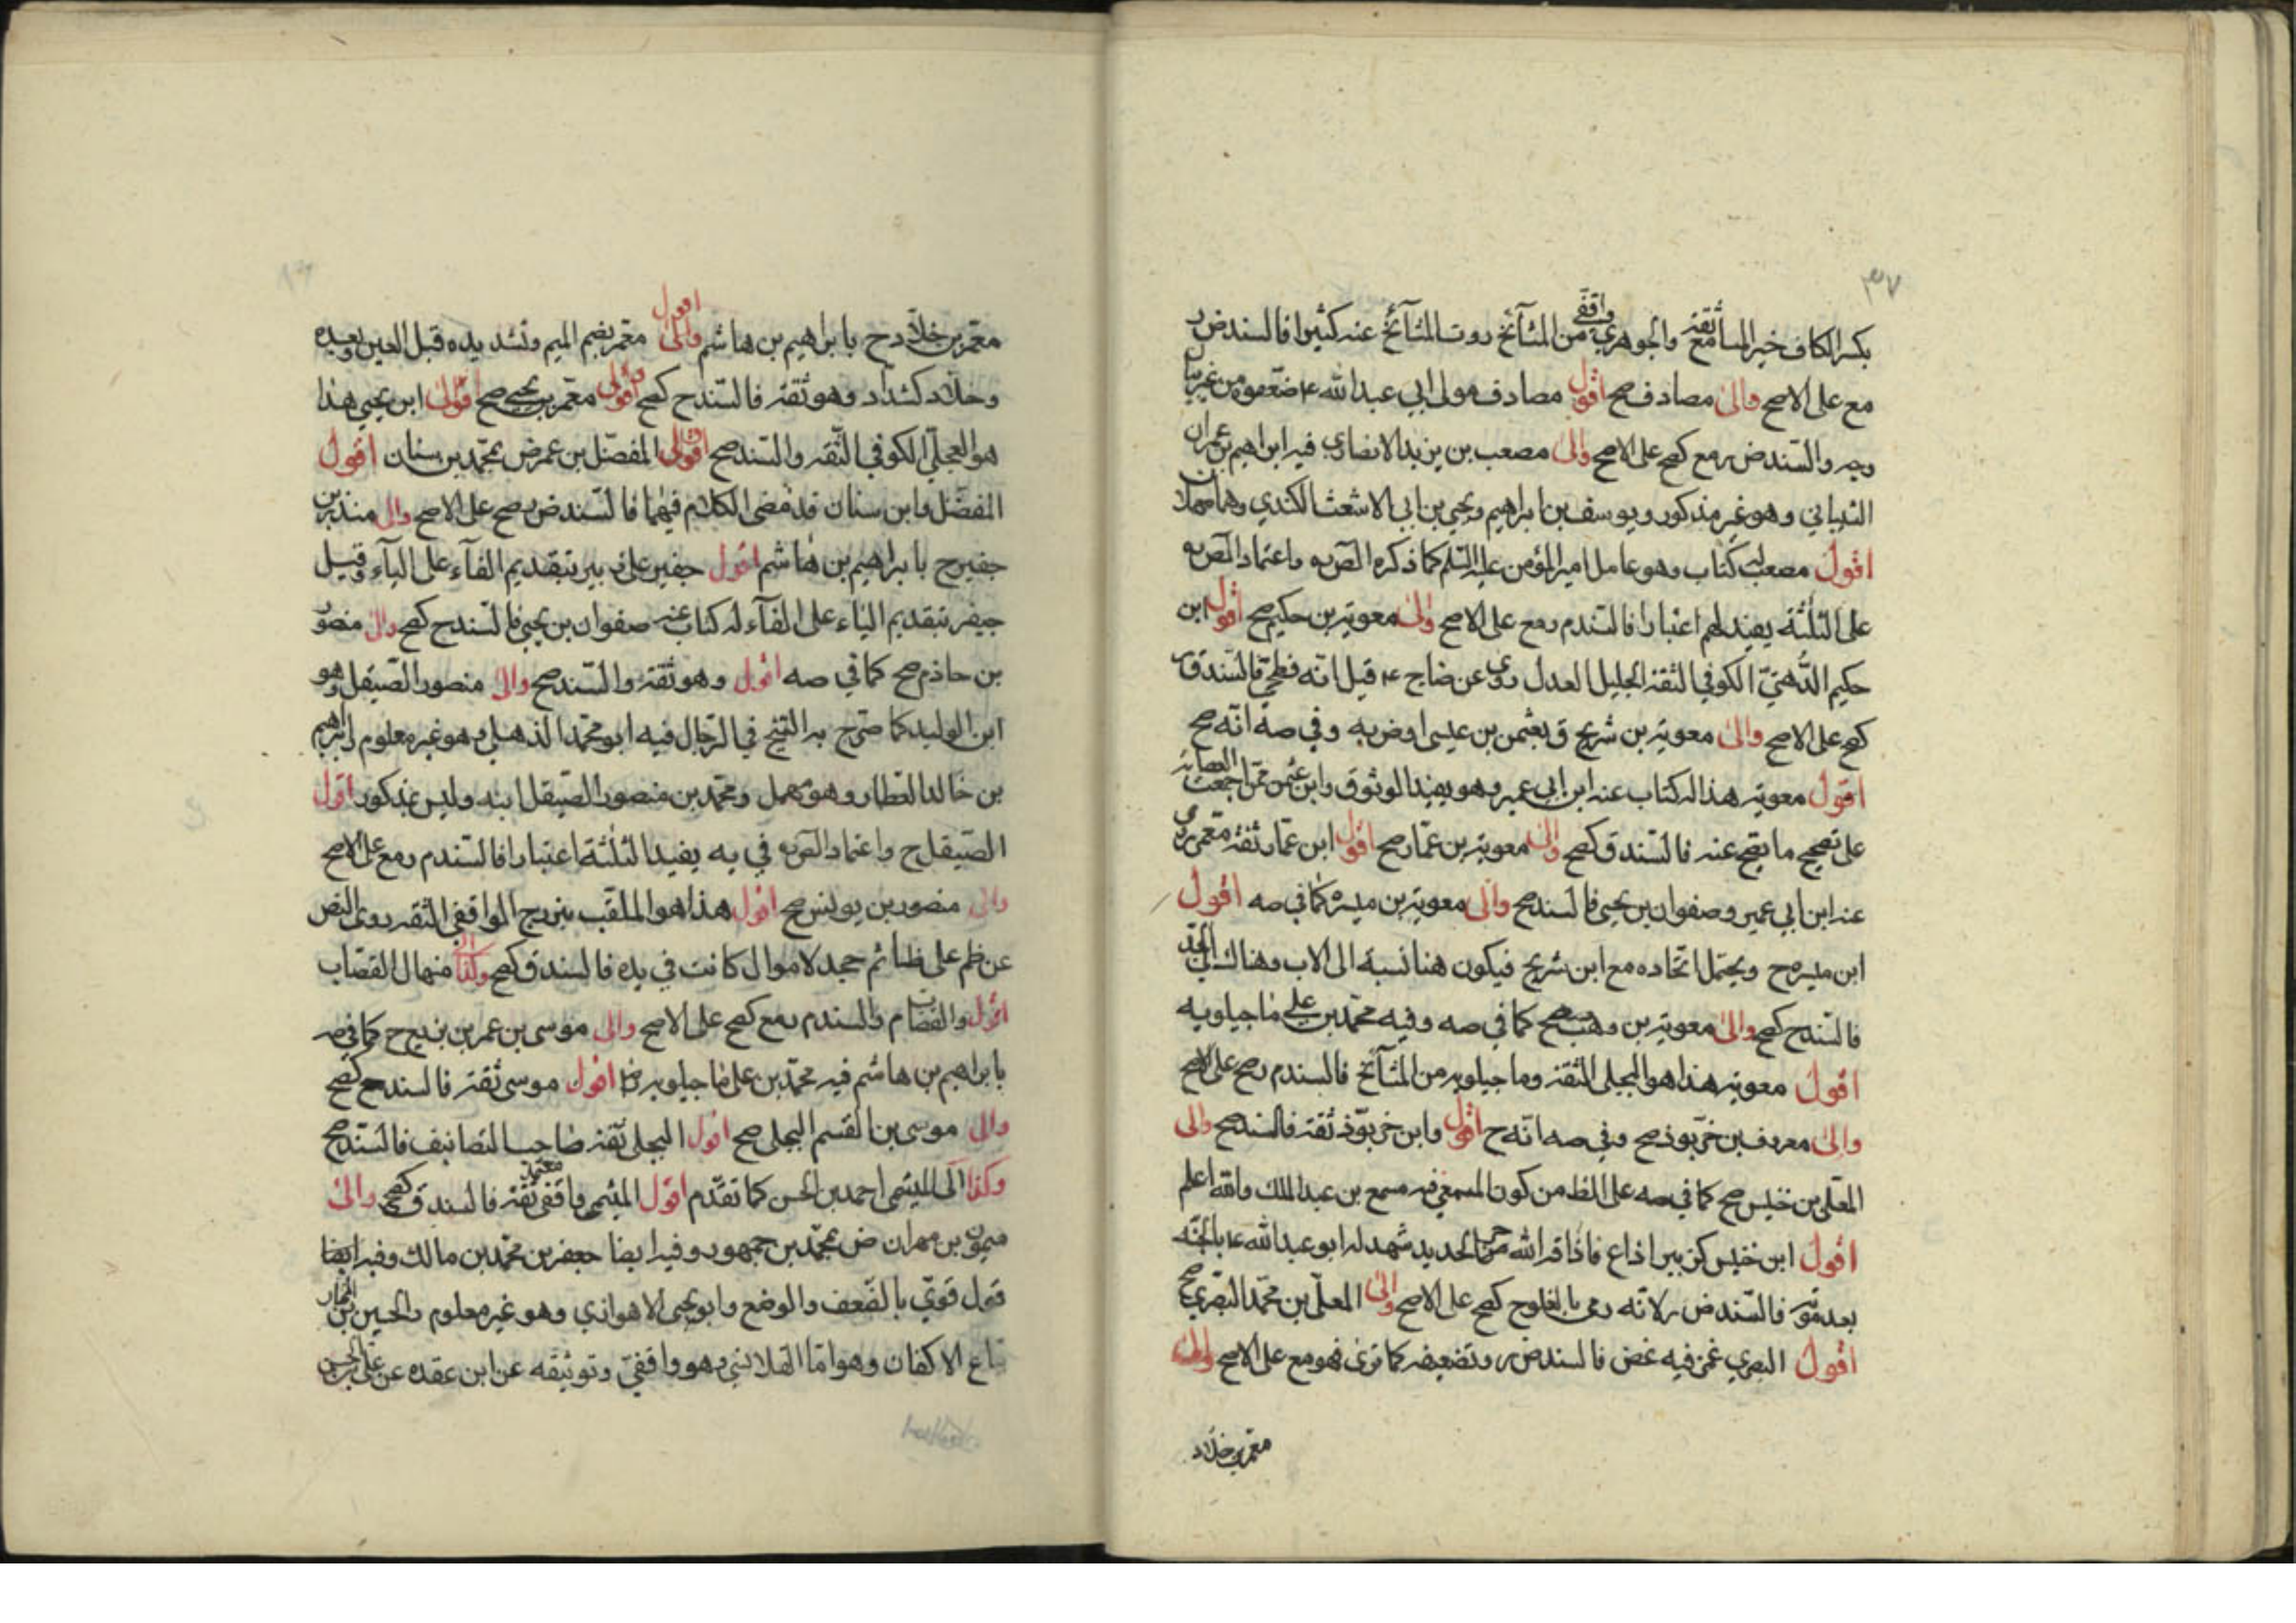 ٣٧
بكسر الكاف خير المسامع ثقة والجوهري واقفي من المشآئخ روت المشآئخ عنه كثيرا فالسند ض ر
مع على الاصح والى مصادف صح اقول مصادف مولى ابي عبدالله ع ضعفوه من غير بيان
وجه والسند ض ر مع كصح على الاصح والى مصعب بن يزيد الانصاري فيه ابراهيم بن عمران
الشيباني وهو غير مذكور ويوسف بن ابراهيم ويحيى بن ابي الاشعث الكندي وهما مهملان
اقول مصعب له كتاب وهو عامل امير المؤمن عليه السلم كما ذكره المص ره واعتماد المص ره
على الثلثة يفيد لهم اعتبارا فالسند م ر مع على الاصح والى معوية بن حكيم صح اقول ابن
حكيم الدهني الكوفي الثقة الجليل العدل روى عن ضا ج ع قيل انه فطحي فالسند ق ر
كصح على الاصح والى معوية بن شريح ق بعثمن بن عيسى او ض به وفي صه انه صح
اقول معوية هذا له كتاب عنه ابن ابي عمير وهو يفيد الوثوق وابن عثمن ممن اجمعت العصابة
على تصحيح ما يصح عنه فالسند ق كصح والى معوية بن عمار صح اقول ابن عمار ثقة
عنه ابن ابي عمير وصفوان بن يحيى فالسند صح والى معوية بن ميسره كما في صه اقول
ابن ميسره ح ويحتمل اتحاده مع ابن شريح فيكون هنا نسبة الى الاب وهناك الى الجد
فالسند ح كصح والى معوية بن وهب صح كما في صه وفيه محمد بن علي ماجيلويه
اقول معوية هذا هو البجلي الثقة وماجيلويه من المشآئخ فالسند م ر صح على الاصح
والى معروف بن خربوذ صح وفي صه انه ح اقول وابن خربوذ ثقة فالسند صح والى
المعلى بن خنيس صح كما في صه على الظ من كون المسمعي فيه مسمع بن عبد الملك والله اعلم
اقول ابن خنيس كزبير اذاع فاذاقه الله حر الحديد شهد له ابو عبدالله ع بالجنة
بعد موته فالسند ض ر لانه رمى بالغلو ح كصح على الاصح والى المعلى بن محمد البصري صح
اقول البصري غمز فيه غض فالسند ض ر وتضعيفه كما ترى فهو مع على الاصح والى
معمر بن خلاد
معمر بن خلاد ح بابراهيم بن هاشم والى اقول معمر بضم الميم وتشديده قبل العين وبعده
وخلاد كشداد وهو ثقة فالسند ح كصح والى معمر بن يحيى صح اقول ابن يحيى هذا
هو العجلي الكوفي الثقة والسند صح والى المفضل بن عمر ض بمحمد بن سنان اقول
المفضل وابن سنان قد مضى الكلام فيهما فالسند ض ر صح على الاصح والى منذر بن
جفير ح بابراهيم بن هاشم اقول جفير على زبير بتقديم الفآء على اليآء وقيل
جيفر بتقديم الياء على الفآء له كتاب عنه صفوان بن يحيى فالسند ح كصح والى منصور
بن حازم صح كما في صه اقول وهو ثقة والسند صح والى منصور الصيقل وهو
ابن الوليد كما صرح به الشيخ في الرجال فيه ابو محمد الذهلي وهو غير معلوم وابراهيم
بن خالد العطار وهو مهمل ومحمد بن منصور الصيقل ابنه وليس بمذكور اقول
الصيقل ح واعتماد المص ره في يه يفيد الثلثة اعتبارا فالسند م ر مع على الاصح
والى منصور بن يونس صح اقول هذا هو الملقب ببزرج الواقفي الثقة روى النص
عن ظم على ضا ثم جحد لاموال كانت في يده فالسند ق كصح وكذا الى منهال القصاب
اقول والقصاب م والسند م ر مع كصح على الاصح والى موسى بن عمر بن بزيع ح كما في صه
بابراهيم بن هاشم فيه محمد بن على ماجيلويه اقول موسى ثقة فالسند ح كصح
والى موسى بن القسم البجلى صح اقول البجلى ثقة صاحب التصانيف فالسند صح
وكذا الى الميثمي احمد بن الحسن كما تقدم اقول الميثمي واقفي ثقة معتمد فالسند ق كصح والى
ميمون بن مهران ض بمحمد بن جمهور وفيه ايضا جعفر بن محمد بن مالك وفيه ايضا
قول قوي بالضعف والوضع وابو يحيى الاهوازي وهو غير معلوم والحسين بن المختار
بياع الاكفان وهو اما القلانسي وهو واقفي وتوثيقه عن ابن عقده عن علي بن الحسن